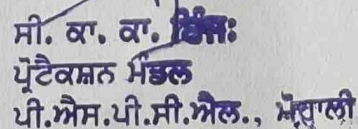 ਸੀ. ਕਾ. ਕਾ. ਇੰਜ:
ਪ੍ਰੋਟੈਕਸ਼ਨ ਮੰਡਲ
ਪੀ.ਐਸ.ਪੀ.ਸੀ.ਐਲ., ਮੋਹਾਲੀ